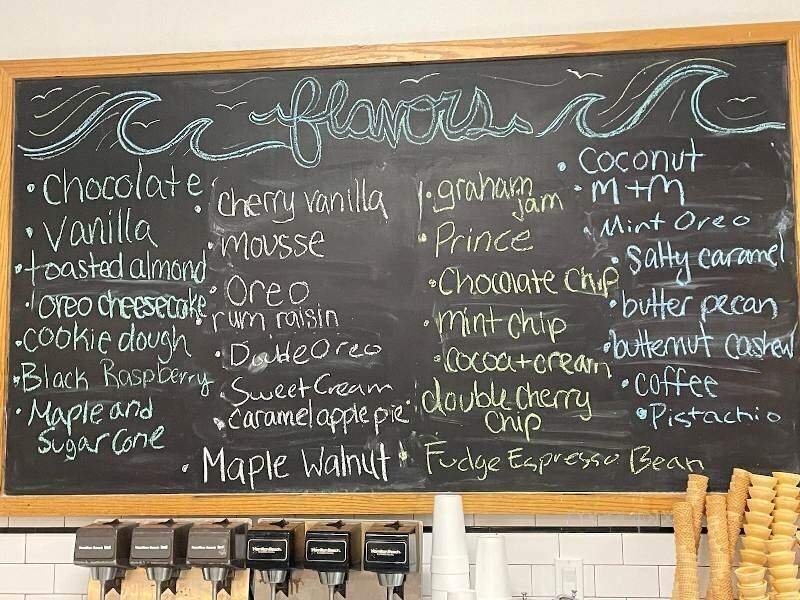 flavors
• Chocolate
• Vanilla
• toasted almond
• oreo cheesecake
• cookie dough
• Black Raspberry
• Maple and
Sugar Cone
• cherry vanilla
• mousse
• Oreo
• rum raisin
• Double Oreo
• Sweet Cream
• caramel apple pie
• Maple Walnut
• graham
jam
• Prince
• Chocolate Chip
• mint chip
• cocoa + cream
• double cherry
chip
• Fudge Espresso Bean
• Coconut
• m + m
• Mint Oreo
• Salty caramel
• butter pecan
• butternut cashew
• coffee
• Pistachio
Hamilton Beach
Hamilton Beach
Hamilton Beach
Hamilton Beach
Hamilton Beach
Hamilton Beach